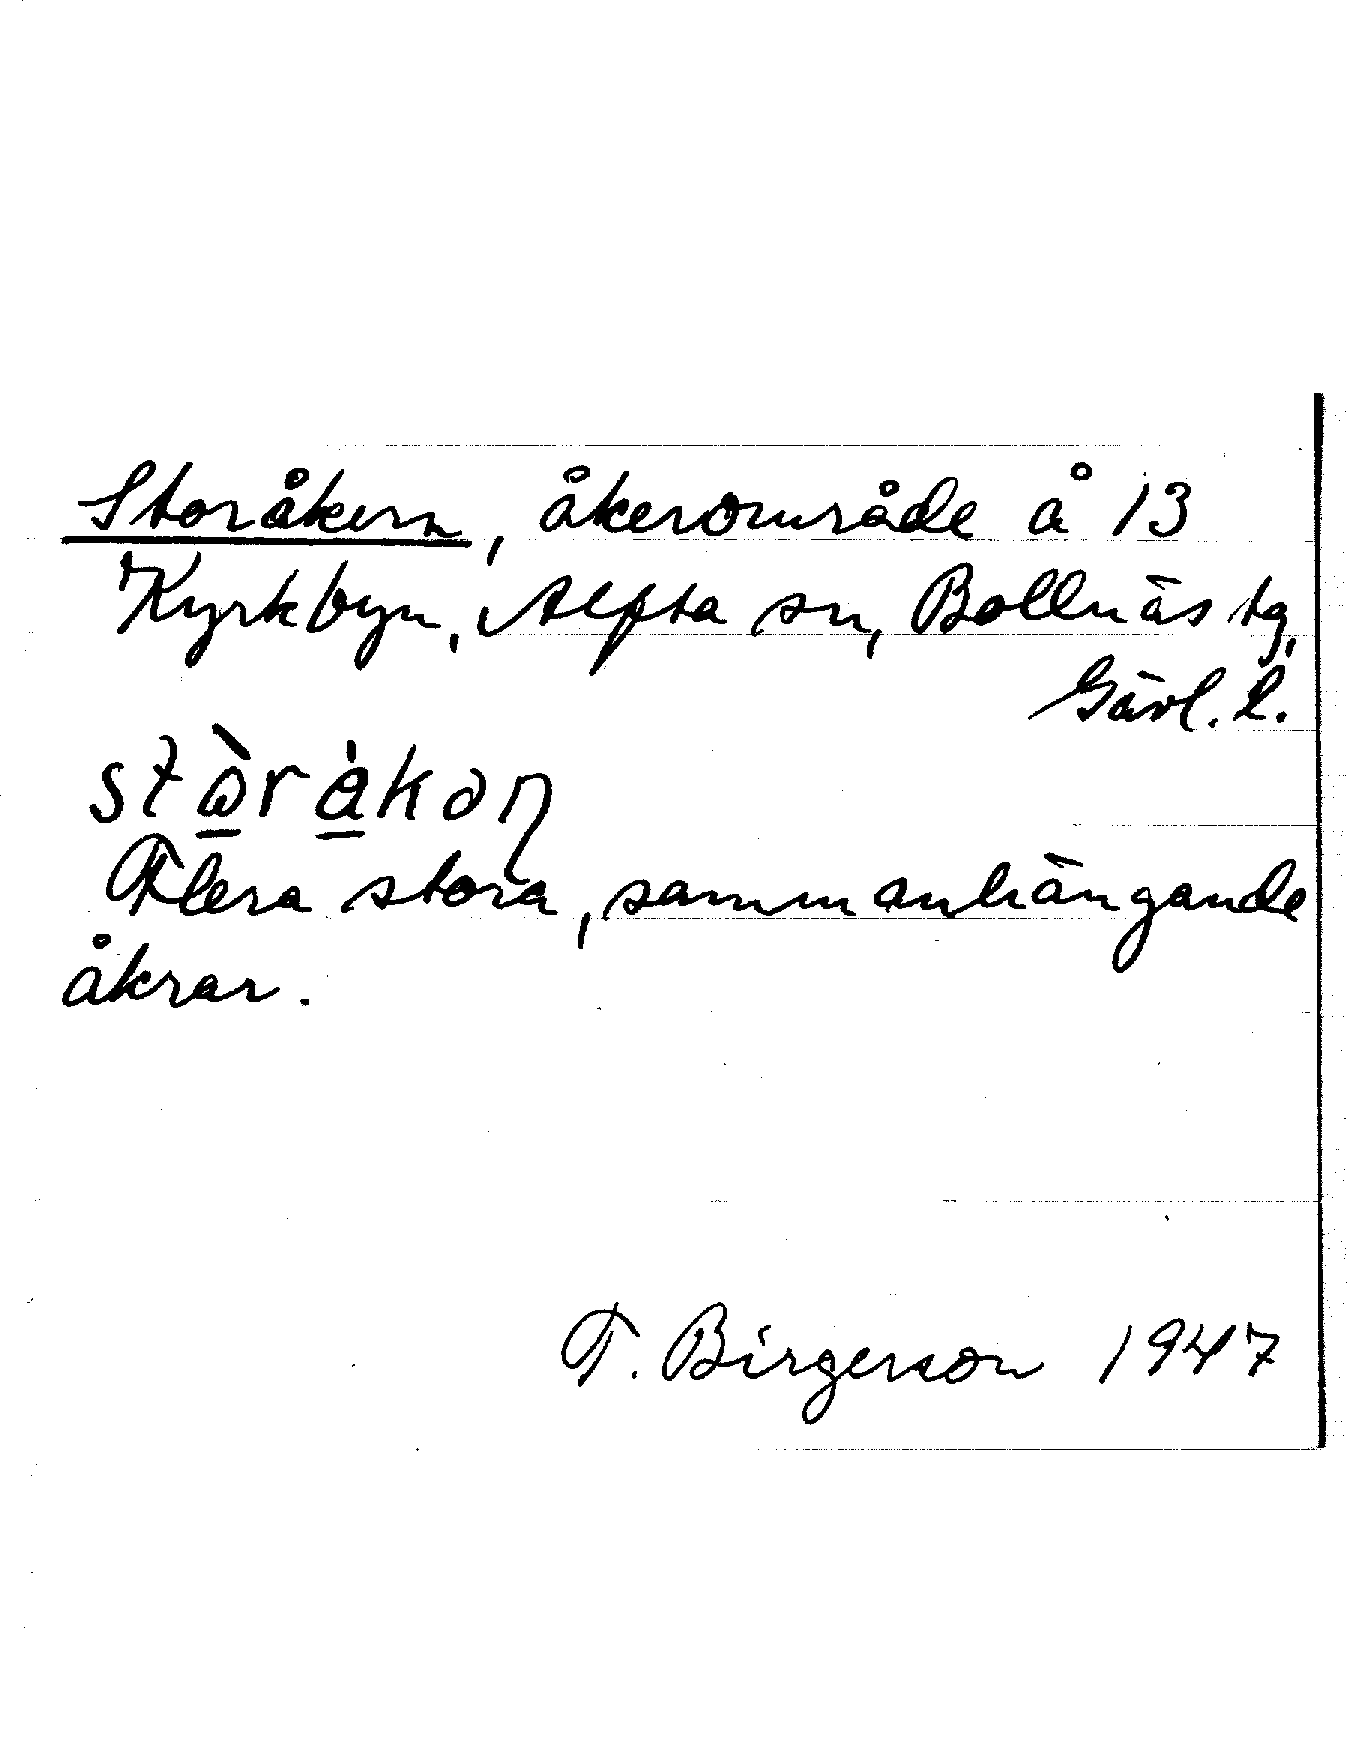 Storåkern, åkerområde å 13
Kyrkbyn, Alfta sn, Bollnäs tg,
Gävl. l.
stὼ̲rå̲̀kəɳ
Flera stora, sammanhängande
åkrar.
T. Birgerson 1947